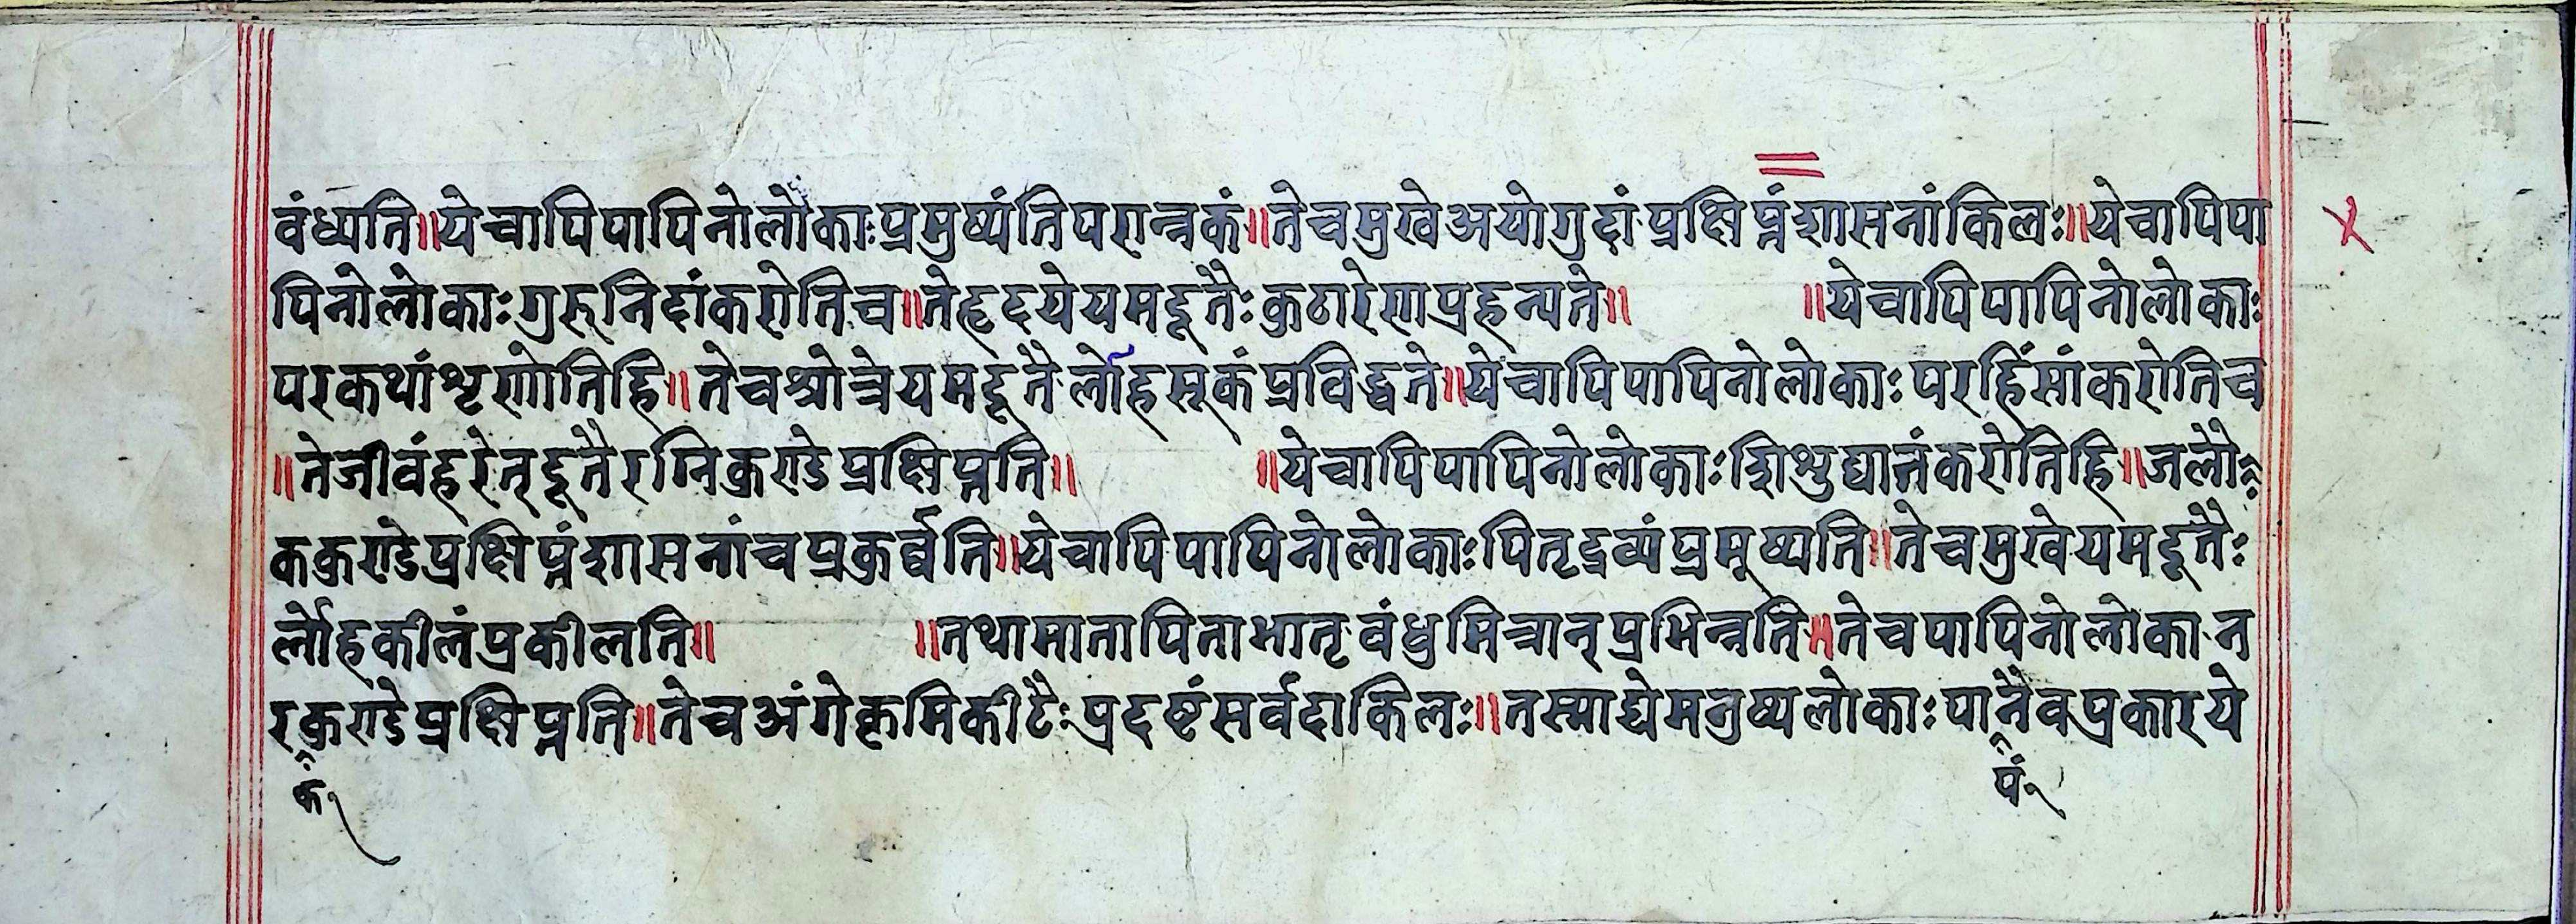 वंध्यति॥ये चापि पापिनो लोकाः प्रमुष्यंति परान्नकं॥ते च मुखे अयोगुदां प्रक्षिप्नं शासनां किलः॥ये चापि पा
पिनो लोकाः गुरुनिदां करोति च॥ते हृदये यमद्दूतैः कुठारेण प्रहन्यते॥ ॥ये चापि पापिनो लोकाः
परकथां शृणोति हि॥ते च श्रोत्रे यमद्दूतैर्लोहसूकं प्रविद्धते॥ये चापि पापिनो लोकाः परहिंसां करोति च
॥ते जीवं हरेत् द्दूतैरग्निकुण्डे प्रक्षिप्नति॥ ॥ये चापि पापिनो लोकाः शिशुद्यातं करोति हि॥जलौ
ककुण्डे प्रक्षिप्नं शासनां च प्रकुर्ब्बति॥ये चापि पापिनो लोकाः पितृद्रव्यं प्रमूष्यति॥ते च मुखे यमद्दूतैः
र्लोहकीलं प्रकीलति॥ ॥तथा मातापिताभातृवंधुमित्रान् प्रभिन्नति॥ते च पापिनो लोका न
रकुण्डे प्रक्षिप्नति॥ते च अंगे कृमिकीटैः प्रदष्टं सर्वदा किलः॥तस्माद्ये मनुष्यलोकाः पानैव प्रकारये
क पं